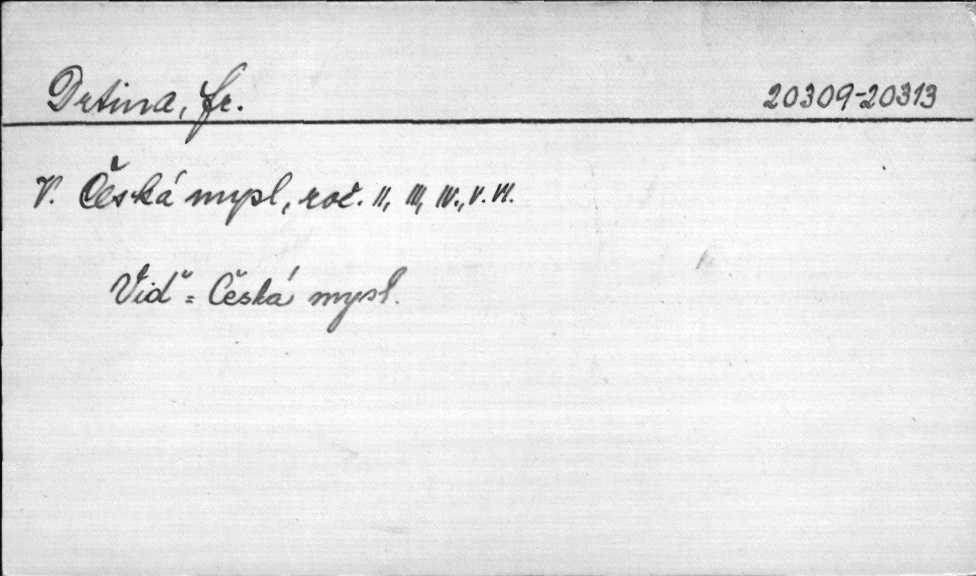 Drtina, Fr. 20309-20313
V. Česká mysl, roč. II, III, IV., V. VI.
Viď = Česká mysl.